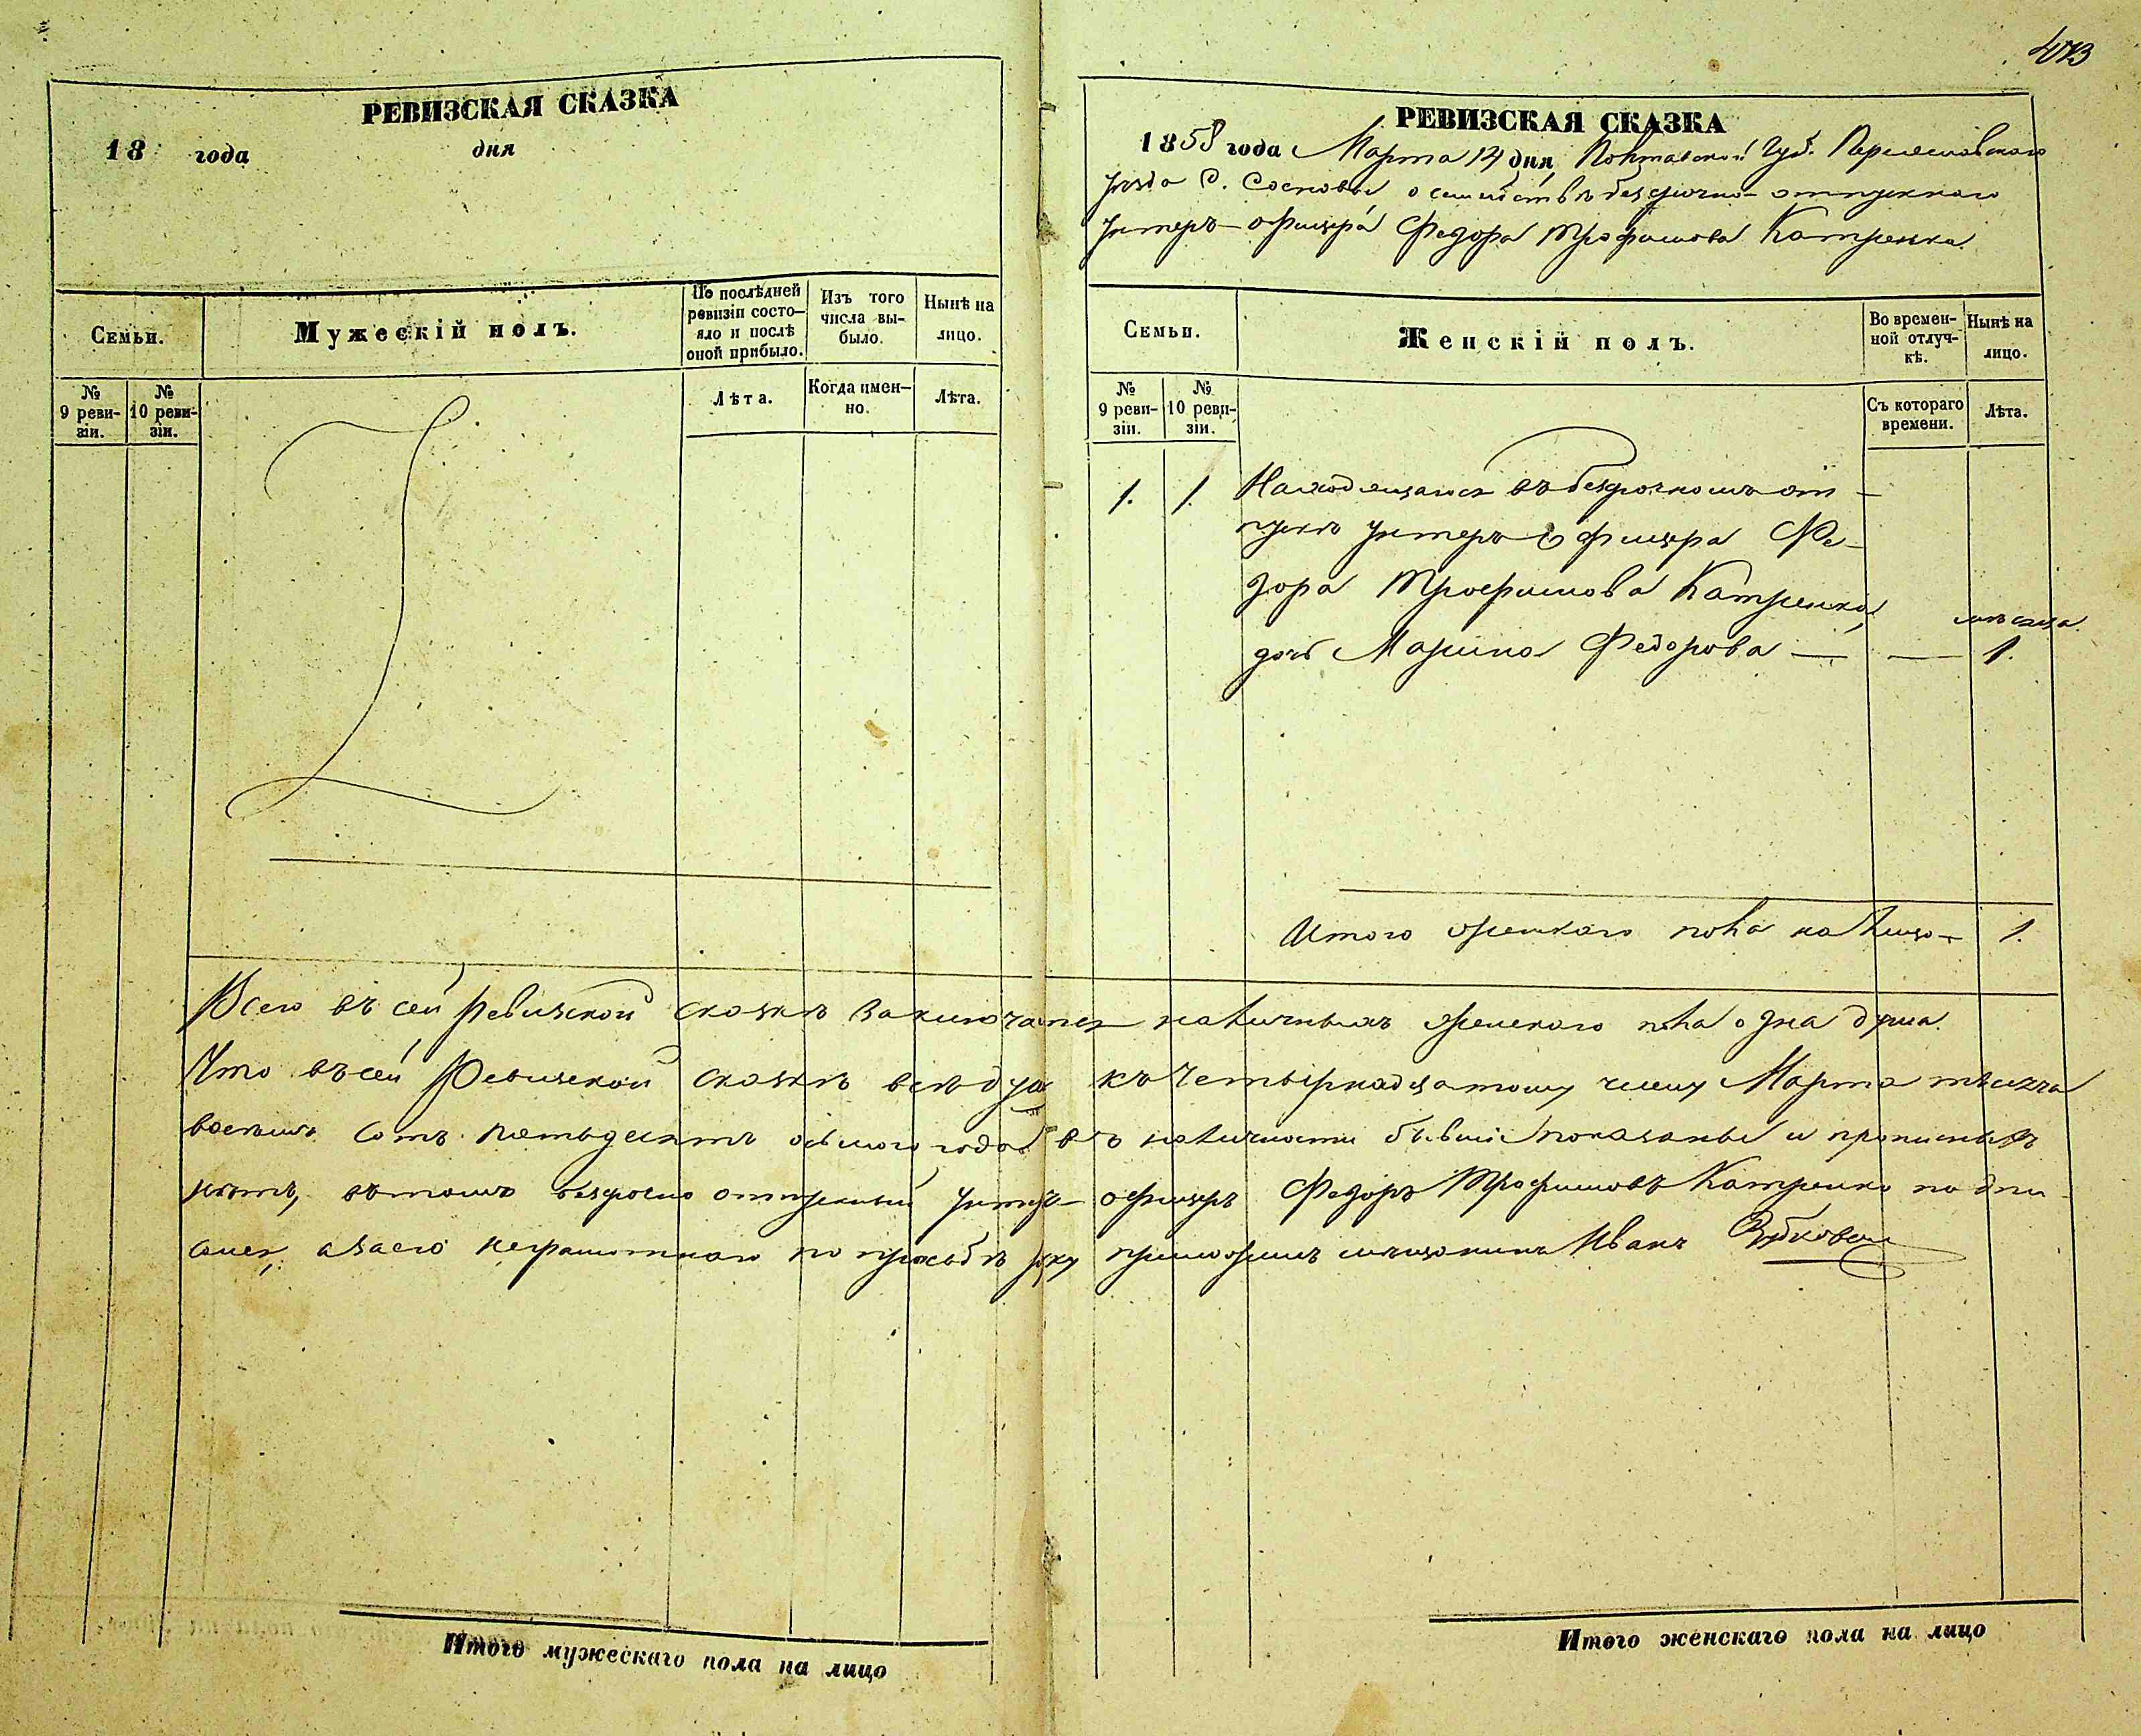 РЕВИЗСКАЯ СКАЗКА
18 года дня
Семьи.
Мужескій полъ.
По послѣдней ревизіи состо-
яло и послѣ оной прибыло.
Изъ того числа вы-
было.
Нынѣ на лицо.
№ 9 реви-
зіи.
№ 10 реви-
зіи.
Лѣта.
Когда имен-
но.
Лѣта.
413
РЕВИЗСКАЯ СКАЗКА
1858 года Марта 14 дня, Полтавской Губ. Переяславскаго
уезда С. Сосновы о семействѣ безсрочно-отпускнаго
Унтеръ-офицера Федора Трофимова Катренка.
Семьи.
Женскій полъ.
Во времен-
ной отлуч-
кѣ.
Нынѣ на лицо.
№ 9 реви-
зіи.
№ 10 реви-
зіи.
Съ котораго времени.
Лѣта.
1. 1. Находящагося въ безсрочномъ от-
пускѣ Унтеръ Офицера Фе-
дора Трофимова Катренка,
мѣсяца
дочь Марина Федорова — — 1.
Итого женскаго пола на лицо — 1.
Всего въ сей Ревизской сказкѣ заключается наличныхъ женскаго пола одна душа.
Что въ сей Ревизской сказкѣ всѣ души къ Четырнадцатому числу Марта тысяча
восемь сотъ пятьдесятъ осьмаго года въ наличности бывшіе показаны и прописныхъ
нѣтъ, въ томъ безсрочно отпускный Унтеръ-офицеръ Федоръ Трофимовъ Катренко подпи-
сался, а за его неграмотнаго по прозьбѣ руку приложилъ мѣщанинъ Иванъ
Итого мужескаго пола на лицо
Итого женскаго пола на лицо